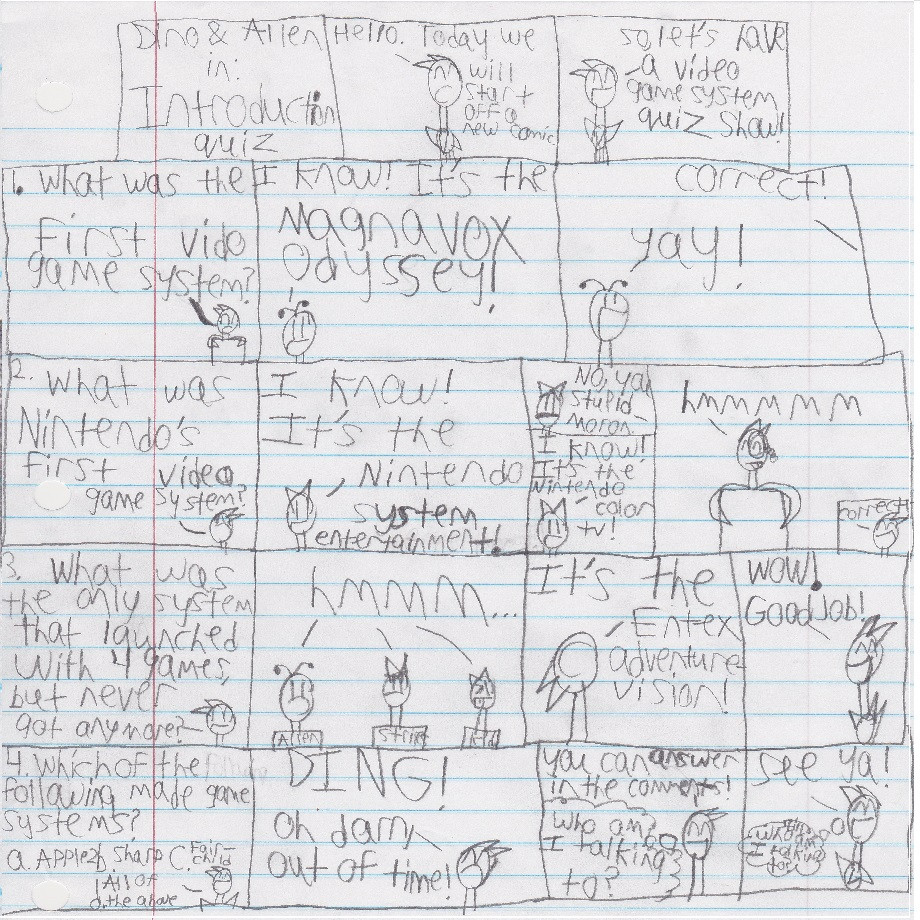 Dino & Allen
in:
Introduction
quiz
Hello. Today we
will
start
off a
new comic
so let's have
a video
game system
quiz show!
1. What was the
first video
game system?
I know! It's the
Magnavox
Odyssey!
correct!
yay!
2. What was
Nintendo's
first video
game system?
I know!
It's the
Nintendo
system
entertainment!
No, you
stupid
moron.
I know!
It's the
Nintendo
color
tv!
hmmmmm
correct!
3. What was
the only system
that launched
with 4 games,
but never
got anymore?
hmmmm...
Allen
It's the
Entex
adventure
vision!
Wow!
Good Job!
4. Which of the
following made game
systems?
a. Apple b. Sharp C. Fair-
child
d. All of
the above
DING!
Oh darn,
out of time!
you can answer
in the comments!
Who am
I talking
to?
see ya!
Who am
I talking
to?